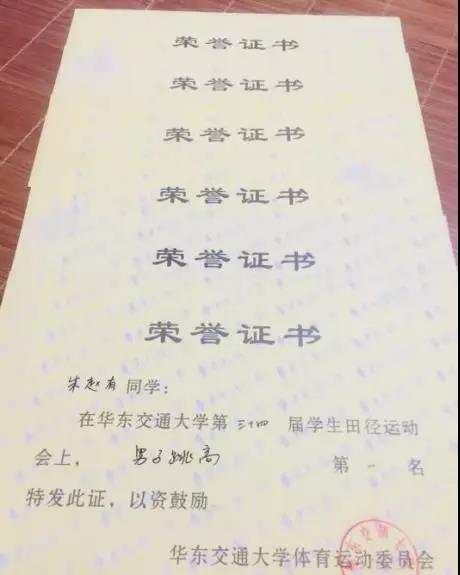 荣誉证书
荣誉证书
荣誉证书
荣誉证书
荣誉证书
荣誉证书
朱赵有 同学：
在华东交通大学第 三十四 届学生田径运动
会上， 男子跳高 第 一 名
特发此证，以资鼓励
华东交通大学体育运动委员会